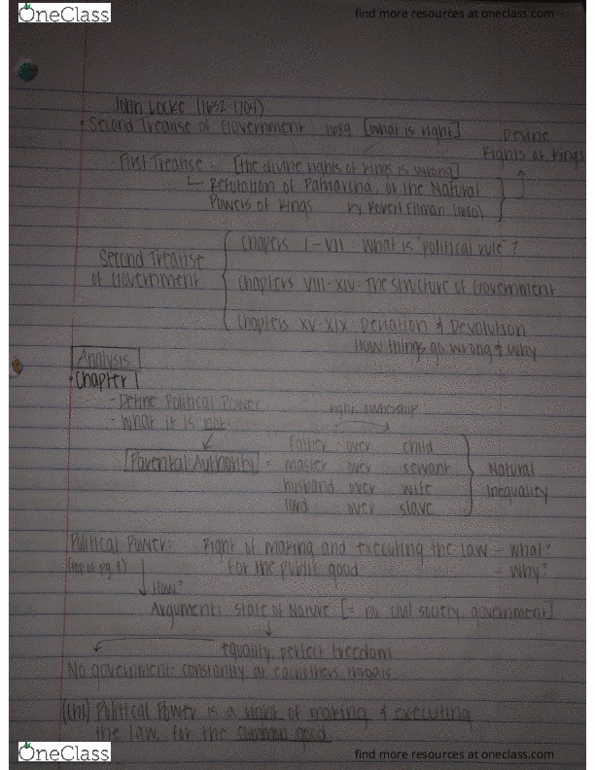 OneClass
find more resources at oneclass.com
John Locke (1632-1704)
• Second Treatise of Government: 1689 [what is right]
Divine
Rights of Kings
- First Treatise: [the divine rights of kings is wrong]
Refutation of Patriarcha, or the Natural
Powers of Kings by Robert Filman (1680)
Chapters I-VII: What is "political rule"?
Second Treatise
of Government
Chapters VIII-XIV: The Structure of Government
Chapters XV-XIX: Deviation & Devolution
How things go wrong & why
Analysis
• Chapter 1
- Define Political Power
right, ownership
- What it is not:
father over child
Parental Authority = master over servant
Natural
Inequality
husband over wife
lord over slave
Political Power: Right of making and executing the law - What?
(top of pg. 8) for the public good - Why?
How?
Argument: State of Nature [= no civil society, government]
equality, perfect freedom
No government: constantly at eachothers
(Ch1) Political Power is a right of making & executing
the law, for the common good.
OneClass
find more resources at oneclass.com